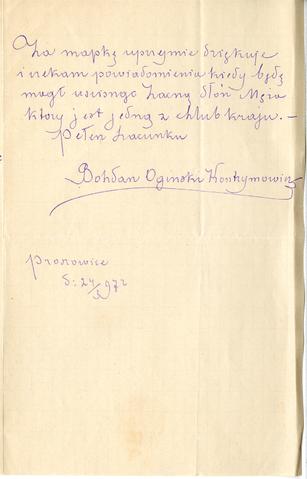 Za mapkę uprzejmie dziękuję
i czekam powiadomienia kiedy będę
mógł uścisnąć Zacną dłoń Męża
który jest jedną z chlub kraju. —
Pełen szacunku
Bohdan Oginski Kontrymowicz
Proszowice
d: 24/X 972